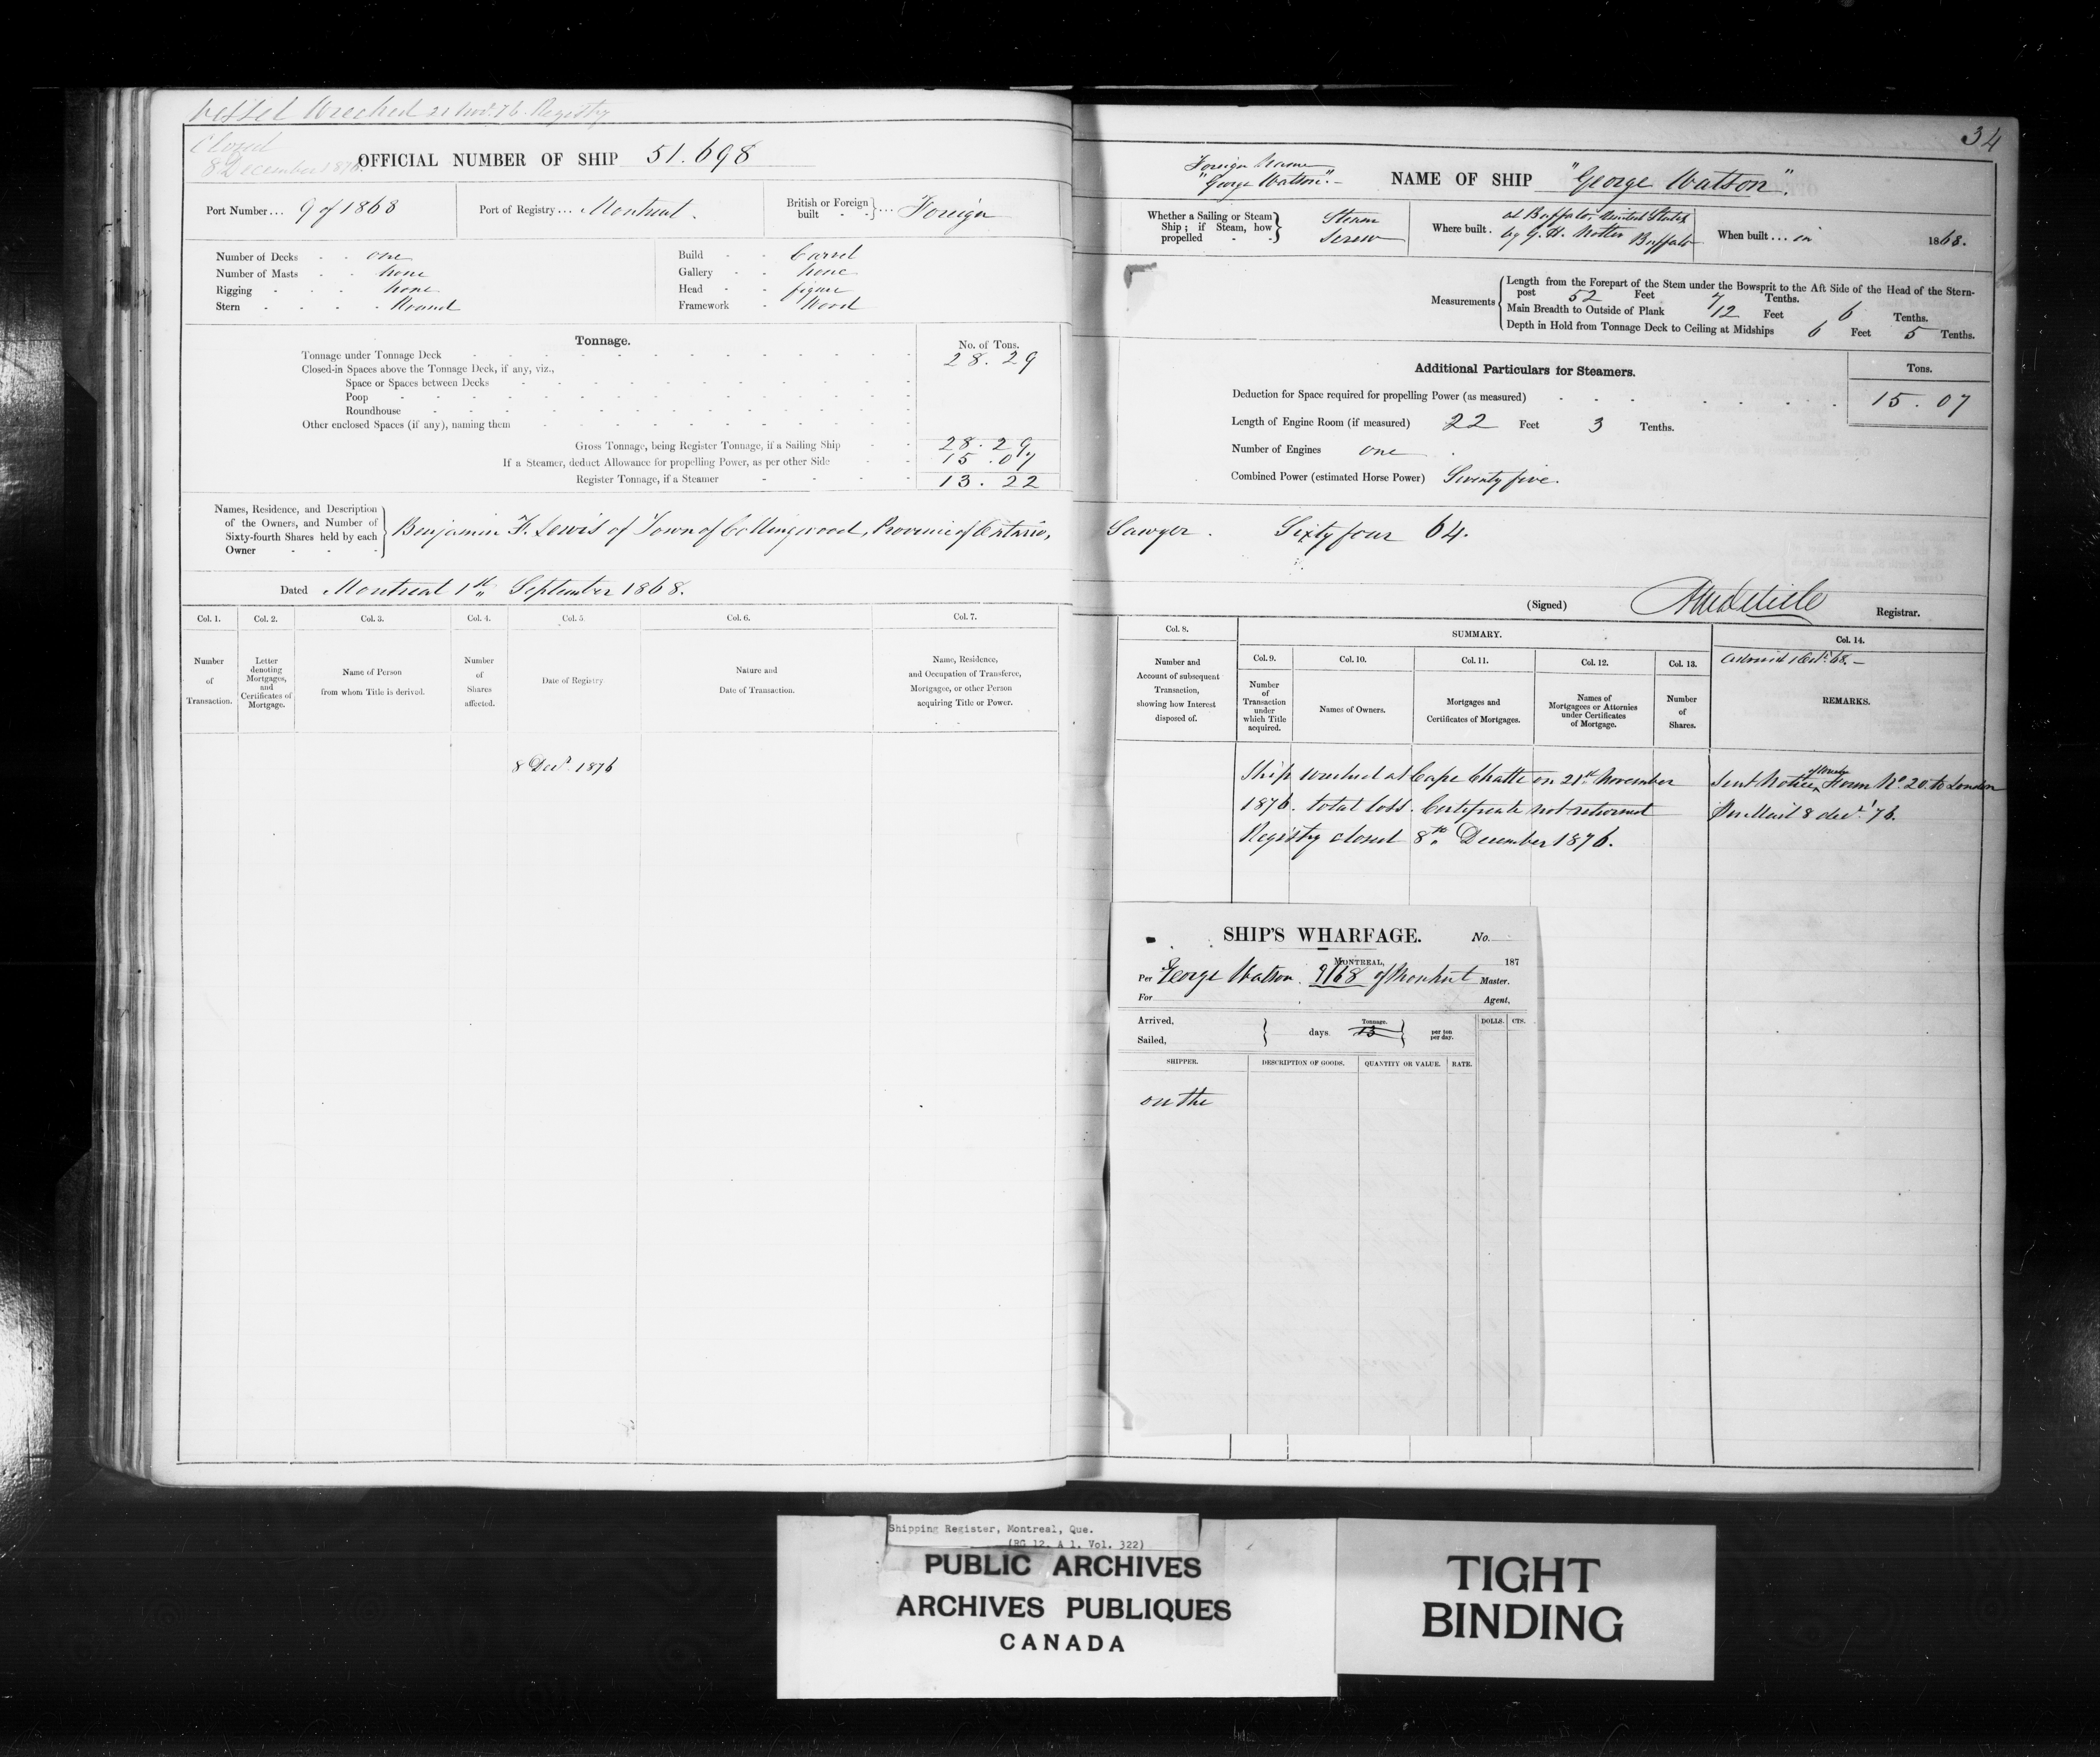 Vessel Wrecked 21 Nov. 76. Registry
Closed
8 December 1876.
OFFICIAL NUMBER OF SHIP 51.698
Port Number... 9 of 1868
Port of Registry... Montreal.
British or Foreign built } ... Foreign
Number of Decks one
Number of Masts None
Rigging None
Stern Round
Build Carvel
Gallery None
Head figure
Framework Wood
Tonnage.
No. of Tons.
Tonnage under Tonnage Deck 28.29
Closed-in Spaces above the Tonnage Deck, if any, viz.,
Space or Spaces between Decks
Poop
Roundhouse
Other enclosed Spaces (if any), naming them
Gross Tonnage, being Register Tonnage, if a Sailing Ship 28.29
If a Steamer, deduct Allowance for propelling Power, as per other Side 15.07
Register Tonnage, if a Steamer 13.22
Names, Residence, and Description
of the Owners, and Number of
Sixty-fourth Shares held by each
Owner
Benjamin F. Lewis of Town of Collingwood, Province of Ontario,
Dated Montreal 1st September 1868.
Col. 1. Col. 2. Col. 3. Col. 4. Col. 5. Col. 6. Col. 7.
Number of Transaction.
Letter denoting Mortgages, and Certificates of Mortgage.
Name of Person from whom Title is derived.
Number of Shares affected.
Date of Registry
Nature and Date of Transaction.
Name, Residence, and Occupation of Transferee, Mortgagee, or other Person acquiring Title or Power.
8 Decr. 1876
34
Foreign Name
"George Watson".-
NAME OF SHIP "George Watson".
Whether a Sailing or Steam
Ship; if Steam, how
propelled
Steam
Screw
Where built.
at Buffalo, United States
by G. H. Notter Buffalo
When built... in 1868.
Measurements
Length from the Forepart of the Stem under the Bowsprit to the Aft Side of the Head of the Stern-
post 52 Feet 7 Tenths.
Main Breadth to Outside of Plank 12 Feet 6 Tenths.
Depth in Hold from Tonnage Deck to Ceiling at Midships 6 Feet 5 Tenths.
Additional Particulars for Steamers.
Tons.
Deduction for Space required for propelling Power (as measured) 15.07
Length of Engine Room (if measured) 22 Feet 3 Tenths.
Number of Engines one
Combined Power (estimated Horse Power) Seventy five.
Sawyer. Sixty four 64.
(Signed) Registrar.
Col. 8.
Number and Account of subsequent Transaction, showing how Interest disposed of.
SUMMARY.
Col. 9. Col. 10. Col. 11. Col. 12. Col. 13. Col. 14.
Number of Transaction under which Title acquired.
Names of Owners.
Mortgages and Certificates of Mortgages.
Names of Mortgagees or Attornies under Certificates of Mortgage.
Number of Shares.
REMARKS.
Ship wrecked at Cape Chatte on 21st November
1876. total loss. Certificate not returned
Registry closed 8th December 1876.
Sent Notice Form No. 20. to London
Per Mail 8 decr. '76.
SHIP'S WHARFAGE. No.
MONTREAL, 187
Per George Watson. 9/68 of Montreal Master.
For Agent,
Arrived,
Sailed,
days
Tonnage.
13
per ton
per day.
DOLLS. CTS.
SHIPPER. DESCRIPTION OF GOODS. QUANTITY OR VALUE. RATE.
on the
Shipping Register, Montreal, Que.
(RG 12, A 1, Vol. 322)
PUBLIC ARCHIVES
ARCHIVES PUBLIQUES
CANADA
TIGHT
BINDING